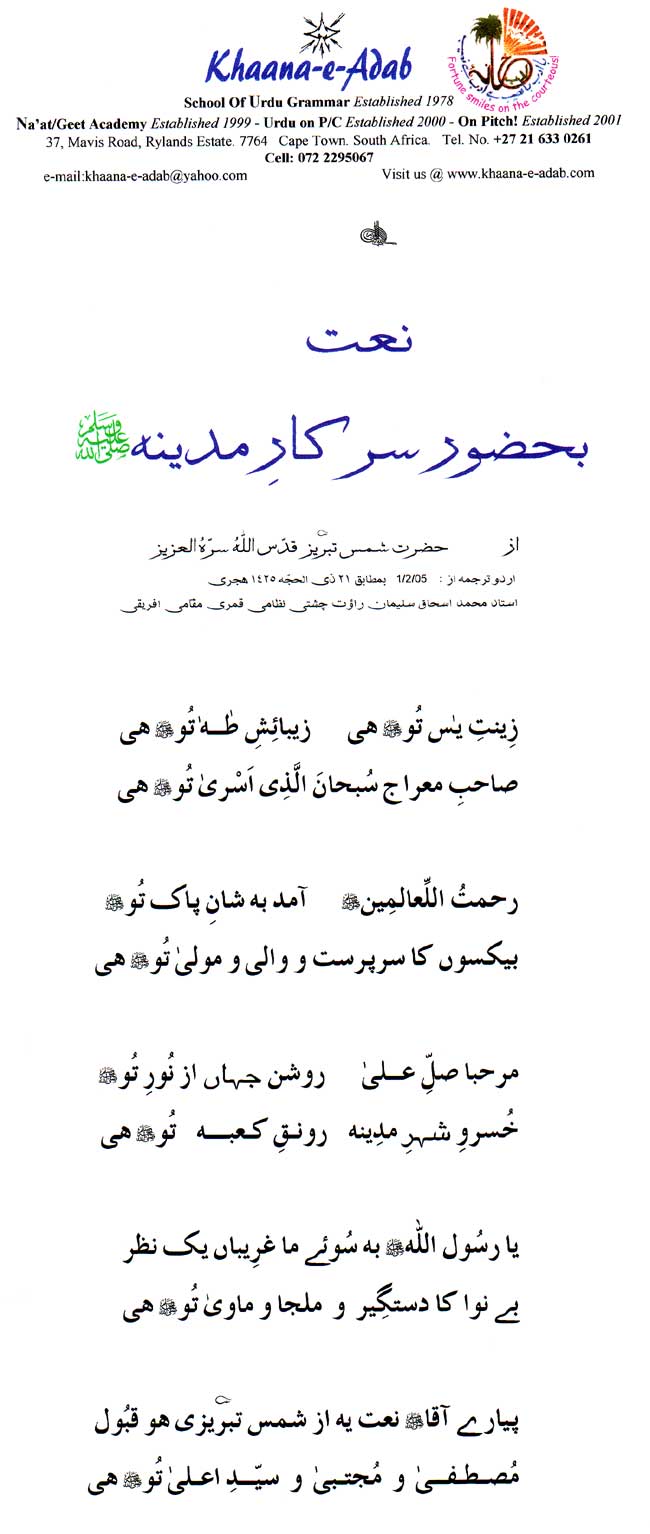 Khaana-e-Adab
Fortune smiles on the courteous!
School Of Urdu Grammar Established 1978
Na'at/Geet Academy Established 1999 - Urdu on P/C Established 2000 - On Pitch! Established 2001
37, Mavis Road, Rylands Estate. 7764 Cape Town. South Africa. Tel. No. +27 21 633 0261
Cell: 072 2295067
e-mail:khaana-e-adab@yahoo.com Visit us @ www.khaana-e-adab.com
نعت
بحضور سرکارِ مدینہ ﷺ
از حضرت شمس تبریزؒ قدّس اللہُ سرّہُ العزیز
اردو ترجمہ از : 1/2/05 بمطابق ٢١ ذی الحجّہ ١٤٢٥ ھجری
استاد محمد اسحاق سلیمان راؤت چشتی نظامی قمری مقامی افریقی
زِینتِ یٰس تُوﷺ ھی زیبائِشِ طٰــہٰ تُوﷺ ھی
صاحبِ معراج سُبحانَ الَّذِی اَسْریٰ تُوﷺ ھی
رحمتُ اللِّعالمِینﷺ آمد بہ شانِ پاک تُوﷺ
بیکسوں کا سرپرست و والی و مولیٰ تُوﷺ ھی
مرحبا صلِّ عــلیٰ روشن جہاں از نُورِ تُوﷺ
خُسروِ شہرِ مدِینہ رونـقِ کـعبــہ تُوﷺ ھی
یا رسُول اللہﷺ بہ سُوئے ما غرِیباں یک نظر
بے نوا کا دستگِیر و ملجا و ماویٰ تُوﷺ ھی
پیارے آقاﷺ نعت یہ از شمس تبریزیؒ ھو قبُول
مُصـطـفـیٰ و مُجتـبیٰ و سیّـدِ اعـلیٰ تُوﷺ ھی